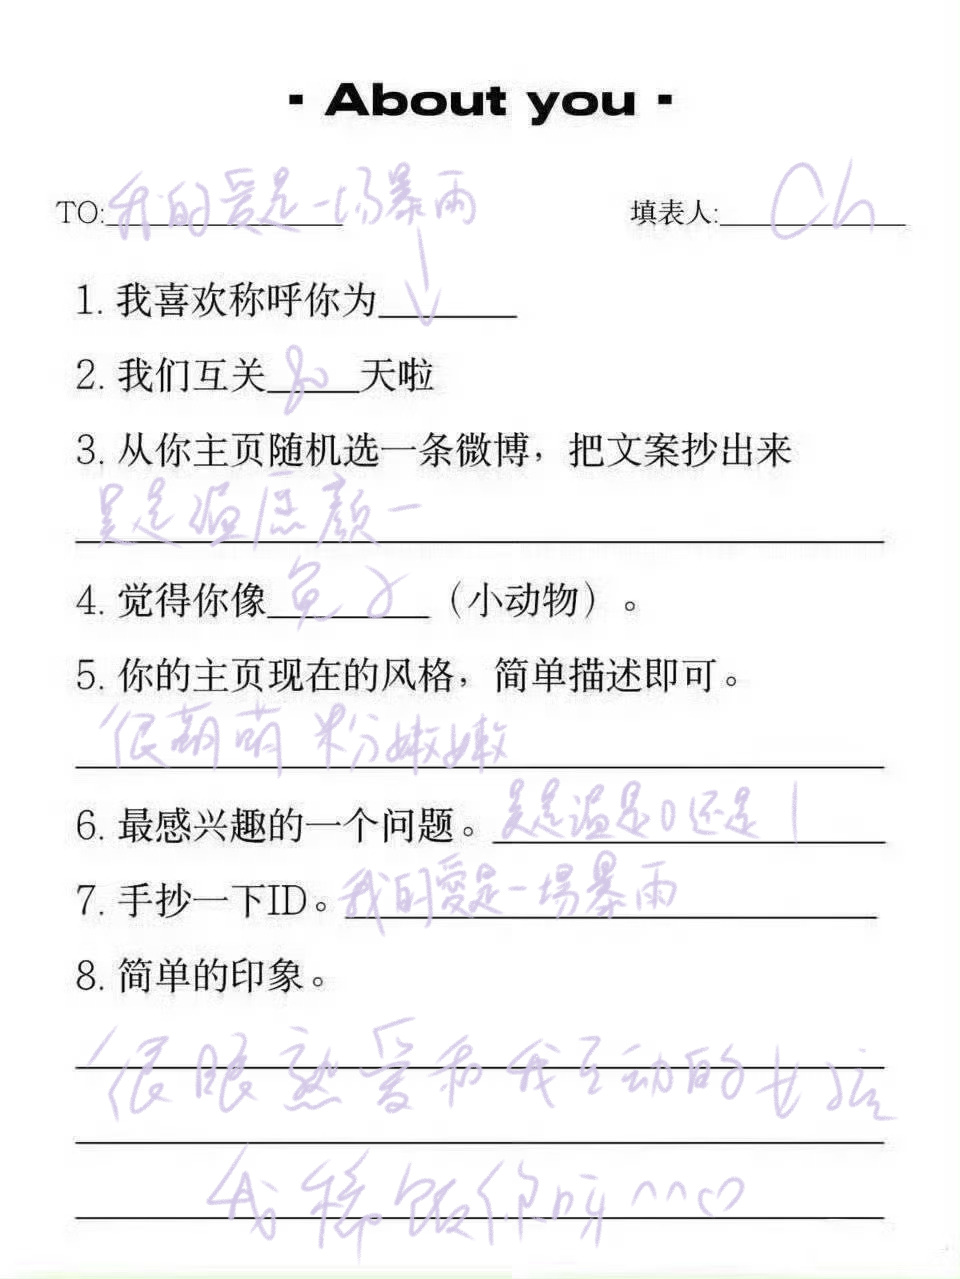 - About you -
TO: 我的爱是一场暴雨 填表人: Ch
1. 我喜欢称呼你为
2. 我们互关80天啦
3. 从你主页随机选一条微博，把文案抄出来
是 温 愿 颜一
4. 觉得你像兔子（小动物）。
5. 你的主页现在的风格，简单描述即可。
很萌萌 粉嫩嫩
6. 最感兴趣的一个问题。是温是0还是1
7. 手抄一下ID。我的愛是一場暴雨
8. 简单的印象。
很眼熟爱和我互动的女孩
我稀饭你呀^^♡